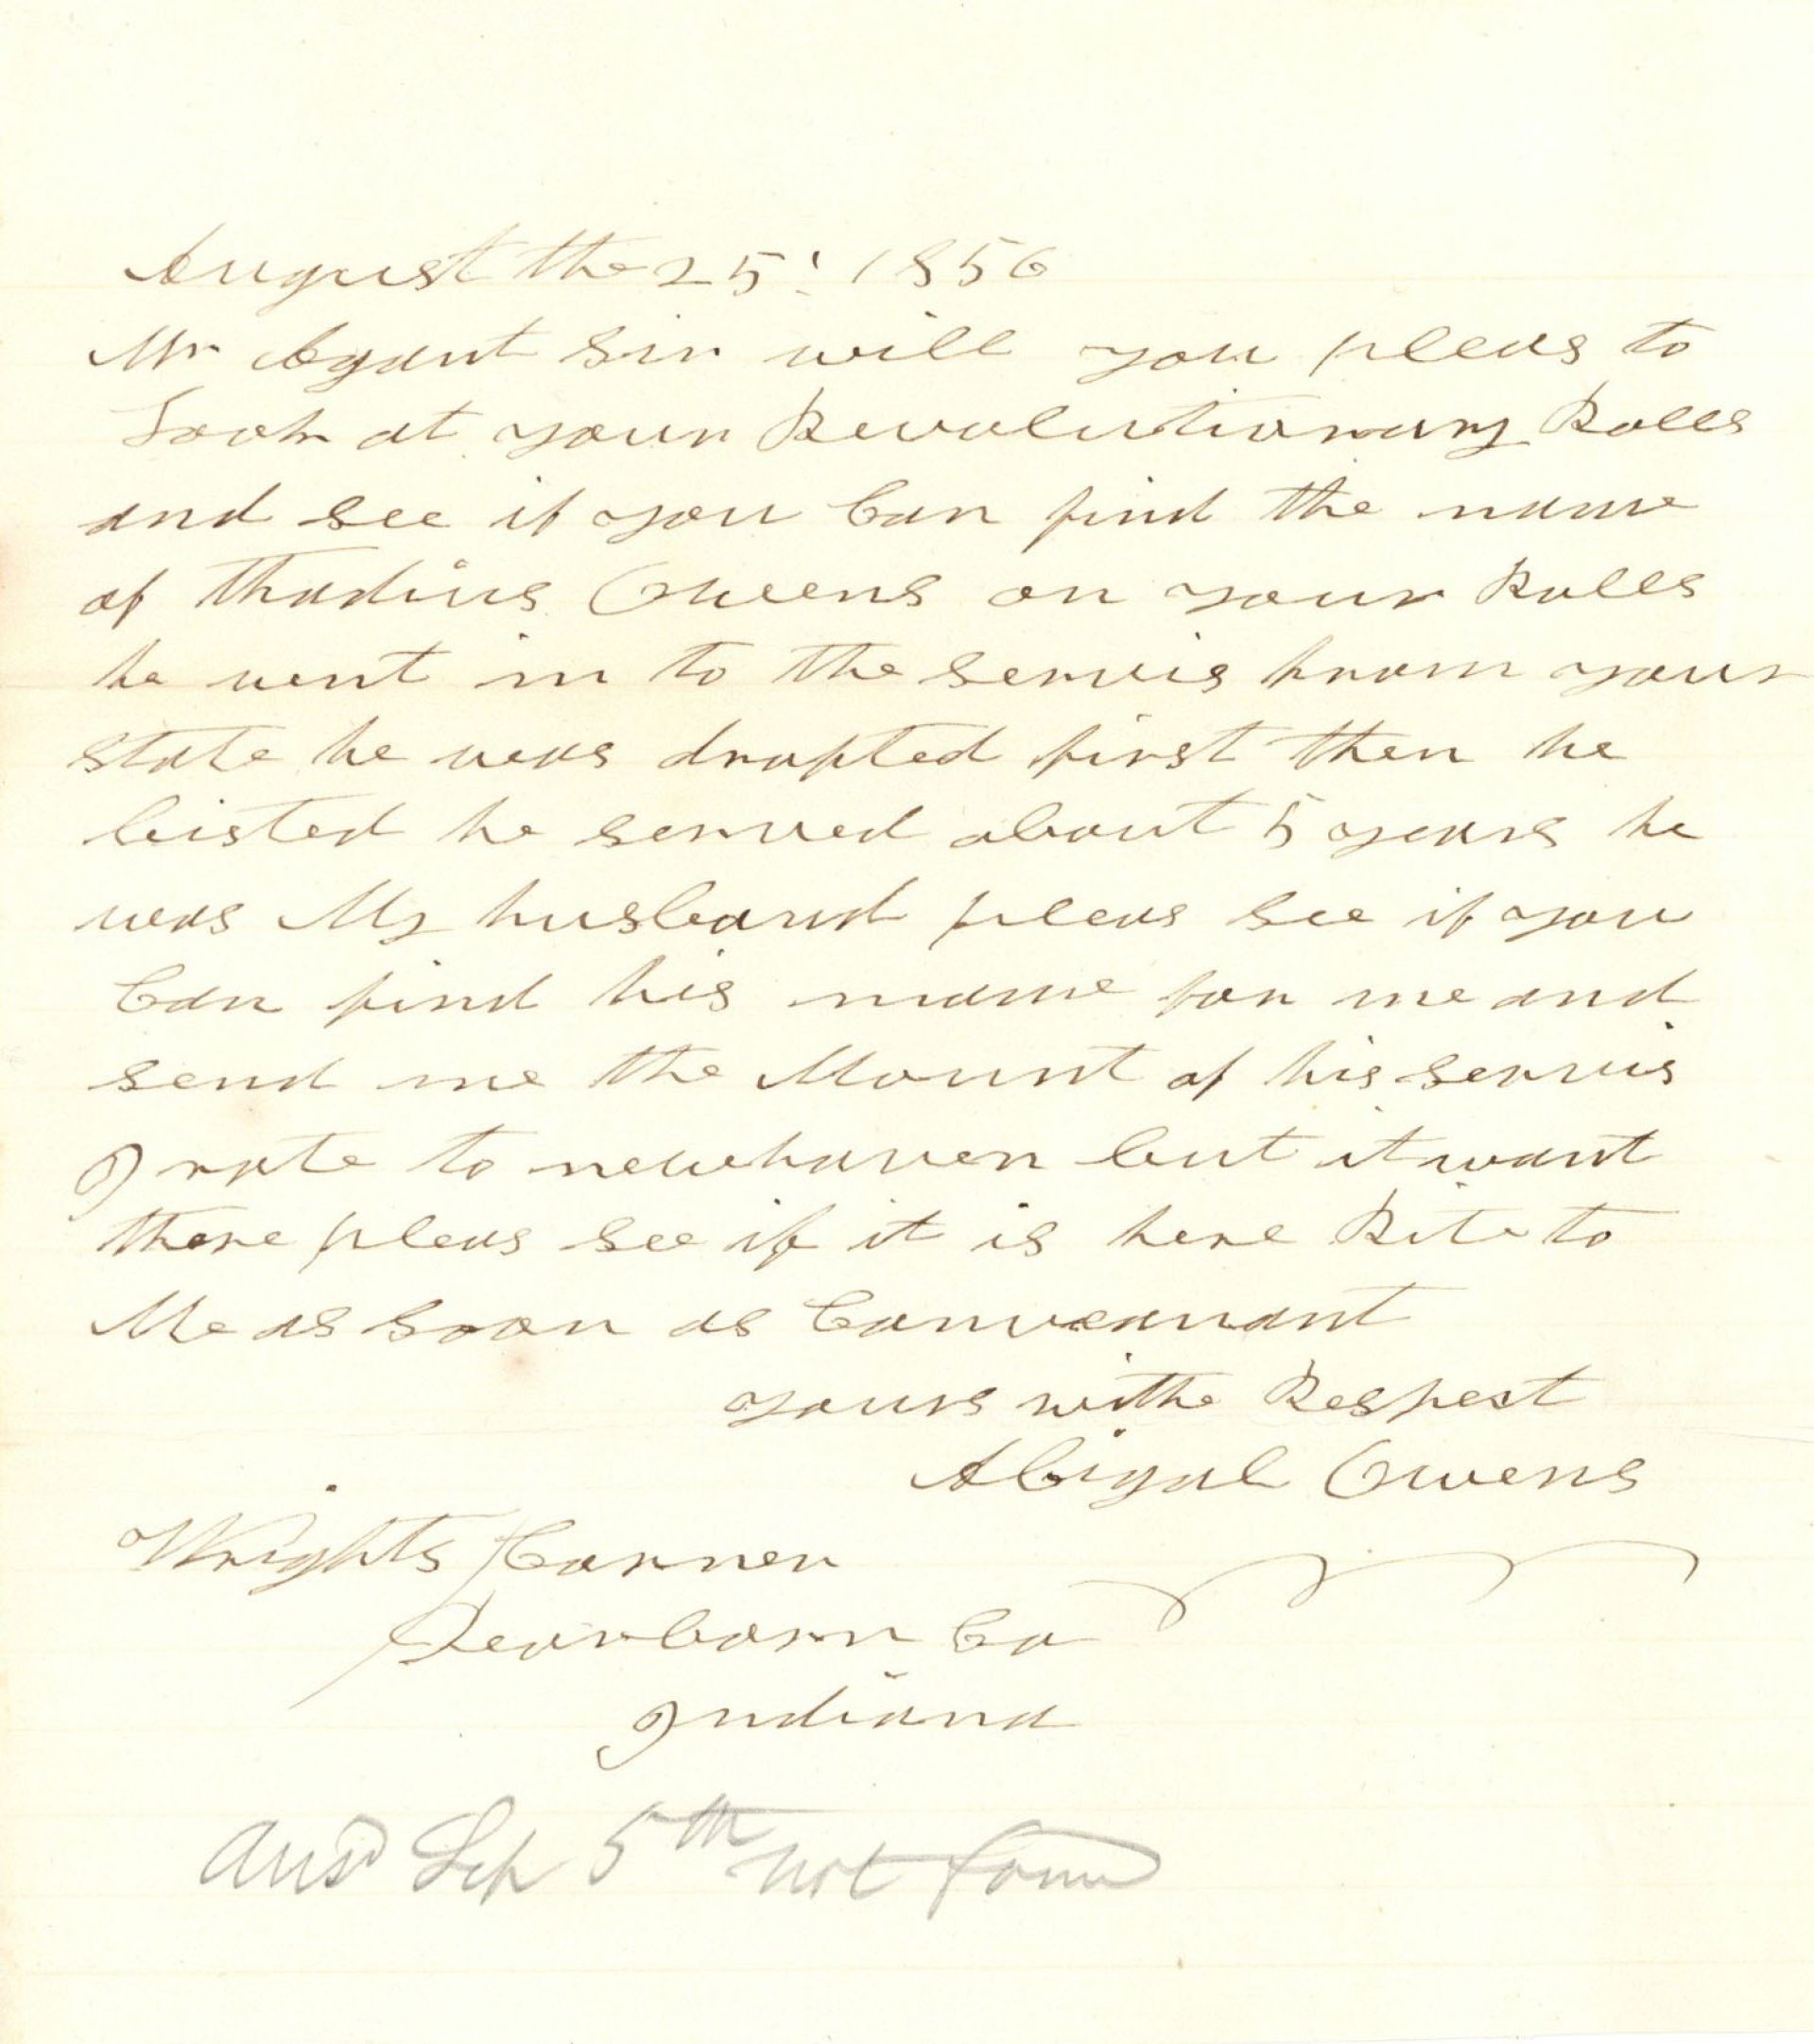 August the 25: 1856
Mr Agant sir will you pleas to
Look at your Revolutionary Rolls
and see if you Can find the name
of Thadius Owens on your Rolls
he went in to the servis from your
state he was drafted first then he
listed he served about 5 years he
was My husband pleas see if you
Can find his name for me and
send me the Mount of his servis
I rote to newhaven but it want
there pleas see if it is here Rite to
Me as soon as Conveanant
yours withe Respect
Abigal Owens
Wrights Corner
Dearborn Co
Indiana
Ansd Sep 5th not found